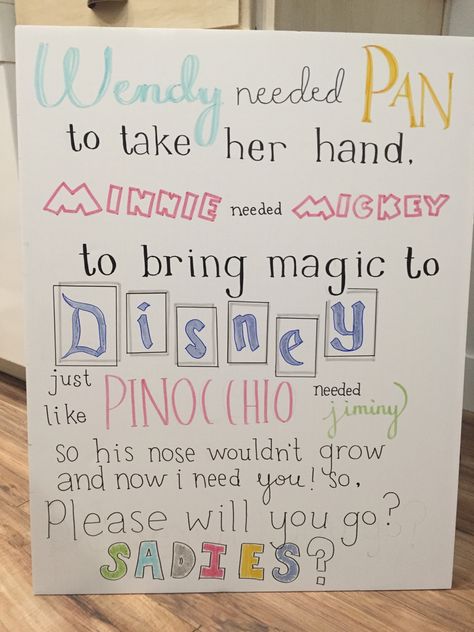 Wendy needed PAN
to take her hand.
MINNIE needed MICKEY
to bring magic to
Disney
just like PINOCCHIO needed jiminy
so his nose wouldn't grow
and now i need you! so,
Please will you go?
SADIES?